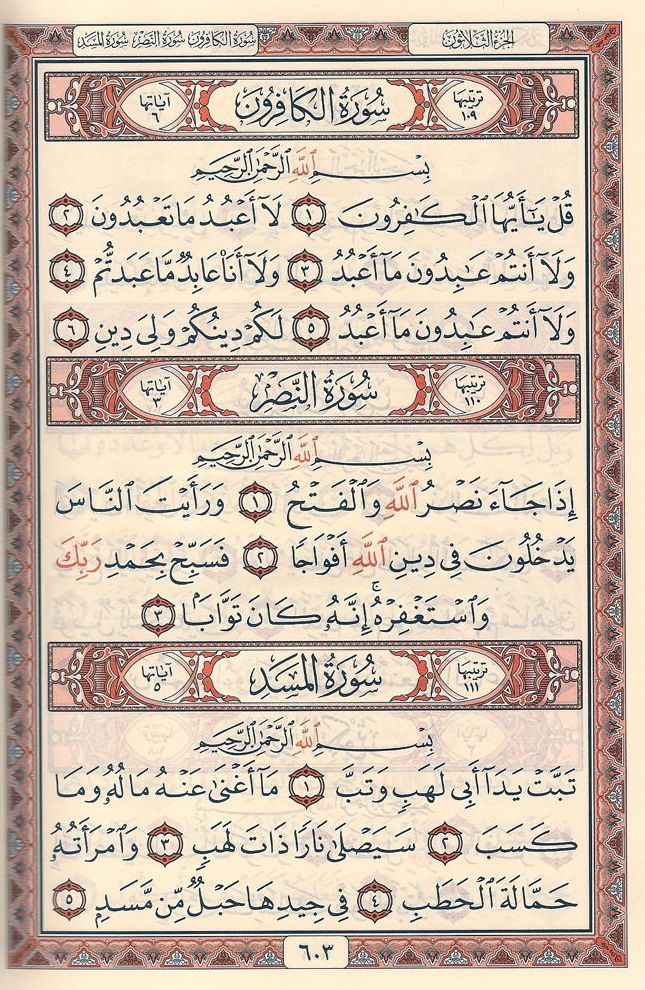 الجزء الثلاثون
سورة الكافرون سورة النصر سورة المسد
ترتيبها ١٠٩
سُورَةُ الْكَافِرُونَ
آياتها ٦
بِسْمِ ٱللَّهِ ٱلرَّحْمَٰنِ ٱلرَّحِيمِ
قُلْ يَٰٓأَيُّهَا ٱلْكَٰفِرُونَ ١ لَآ أَعْبُدُ مَا تَعْبُدُونَ ٢
وَلَآ أَنتُمْ عَٰبِدُونَ مَآ أَعْبُدُ ٣ وَلَآ أَنَا۠ عَابِدٌ مَّا عَبَدتُّمْ ٤
وَلَآ أَنتُمْ عَٰبِدُونَ مَآ أَعْبُدُ ٥ لَكُمْ دِينُكُمْ وَلِىَ دِينِ ٦
ترتيبها ١١٠
سُورَةُ النَّصْرِ
آياتها ٣
بِسْمِ ٱللَّهِ ٱلرَّحْمَٰنِ ٱلرَّحِيمِ
إِذَا جَآءَ نَصْرُ ٱللَّهِ وَٱلْفَتْحُ ١ وَرَأَيْتَ ٱلنَّاسَ
يَدْخُلُونَ فِى دِينِ ٱللَّهِ أَفْوَاجًا ٢ فَسَبِّحْ بِحَمْدِ رَبِّكَ
وَٱسْتَغْفِرْهُ ۚ إِنَّهُۥ كَانَ تَوَّابًۢا ٣
ترتيبها ١١١
سُورَةُ الْمَسَدِ
آياتها ٥
بِسْمِ ٱللَّهِ ٱلرَّحْمَٰنِ ٱلرَّحِيمِ
تَبَّتْ يَدَآ أَبِى لَهَبٍ وَتَبَّ ١ مَآ أَغْنَىٰ عَنْهُ مَالُهُۥ وَمَا
كَسَبَ ٢ سَيَصْلَىٰ نَارًا ذَاتَ لَهَبٍ ٣ وَٱمْرَأَتُهُۥ
حَمَّالَةَ ٱلْحَطَبِ ٤ فِى جِيدِهَا حَبْلٌ مِّن مَّسَدٍۭ ٥
٦٠٣